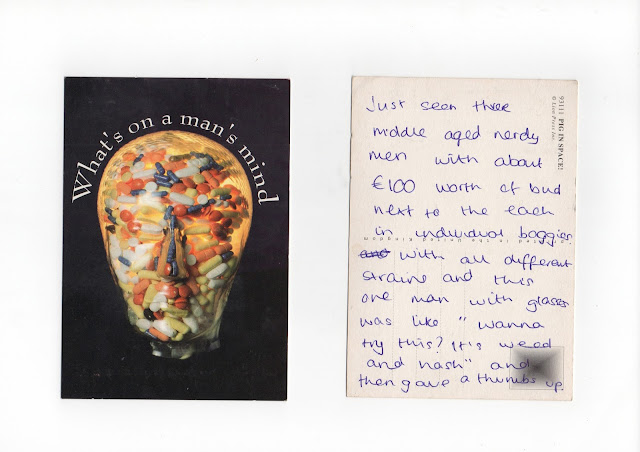 What's on a man's mind
93111 PIG IN SPACE!
© Lion Press Inc.
Just seen three
middle aged nerdy
men with about
€100 worth of bud
next to the each
in individual baggies
and with all different
strains and this
one man with glasses
was like "wanna
try this? It's weed
and hash" and
then gave a thumbs up.
in the United Kingdom